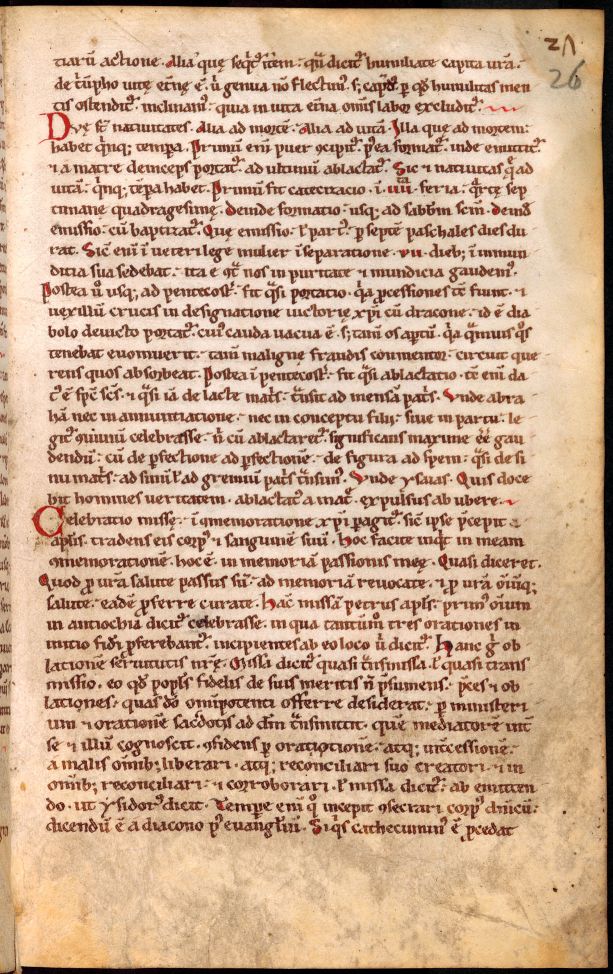 21
26
tiarū actione. Alia' quę seqr̄t' itē̄m: qn̄ dicit' humiliate capita ur̄a.
de tr̄ūpho uitę et̄nę ē. ū genua nō flectim'. s; capd̄. p qd̄ humilitas men
tis ostendit'. inclinam'. quia in uita et̄na om̄is labor excludit'.
Dvę st̄ natiuitates. Alia ad mortē. Alia ad uitā. Illa que ad mortem:
habet qinq; tempa. Primū eni puer ɔcipit'. p'ea format'. inde emittit'.
⁊ a matre deinceps portat'. ad ultimū ablactat'. Sic ⁊ natiuitas q̄ ad
uitā. qinq; tēpa habet. Primū fit catecizacio. i. iiii. feria. qrtę sep
timane quadragesimę. deinde formatio. usq; ad sabbm̄ scm̄. deind
emissio. cū baptizat'. Quę emissio. ł part'. p septē paschales dies du
rat. Sic eni i ueteri lege mulier i separatione. vii. dieb; i inmun
ditia sua sedebat. ita e qt' nos in puritate ⁊ mundicia gaudem'.
Postea u̇ usq; ad pentecost'. fit qsi portatio. qa pcessiones tē fiunt. ⁊
uexillū crucis in designatione uictorię xpi cū dracone. id ē dia
bolo deuicto portat'. cui' cauda uacua ē. s; tam̄ os aptū. qa qmuis qs
tenebat euomuerit. tam̄ malignę fraudis conmentor. circuit que
rens quos absorbeat. Postea i pentecost'. fit qsi ablactatio. tē eni da
t' ē spc̄ scs̄. ⁊ qsi iā de lacte mat's. t'nsit ad mensā pat's. Vnde abra
hā nec in annuntiatione. nec in conceptu filii. siue in partu. le
git' quiuiū celebrasse. n̄ cū ablactaret'. significans maxime eē gau
dendū. cū de pfectione ad pfectionē. de figura ad spem. qsi de si
nu mat's. ad simił ad gremiū pat's t'nsim'. Vnde ysaias. Quis doce
bit homines ueritatem. ablactat' a mat'. expulsus ab ubere.
Celebratio missę. i ɔmemoratione xpi pagit'. sic ipse pcepit
aplis. tradens eis corp' ⁊ sanguinē suū. Hoc facite inqt' in meam
ɔmemorationē. hoc ē. in memoriā passionis meę. Quasi diceret.
Quod p ur̄a salute passus sū. ad memoriā reuocate. ⁊ p ur̄a om̄iūq;
salute. eadē pferre curate. Hac̄ missā petrus apl's. prim' om̄ium
in antiochia dicit' celebrasse. in qua tantūm tres orationes in
initio fidei pferebant'. incipientes ab eo loco u dicit'. Hanc g̊ ob
lationē seruitutis nr̄ę. Missa dicit' quasi t'nsmissa. ł quasi trans
missio. eo qd̄ popl's fidelis de suis meritis n̄ psumens. p̄ces ⁊ ob
lationes. quas do̅ omipotenti offerre desiderat. p ministeri
um ⁊ orationē sacdotis ad dn̄m t'nsmittit. quē mediatorē int'
se ⁊ illū cognoscit. ɔfidens p oratiotionē. atq; int'cessionē.
a malis om̄ib; liberari. atq; reconciliari suo creatori. ⁊ in
om̄ib; reconciliari. ⁊ corroborari. ł missa dicit'. ab emitten
do. ut ysidor' dicit. Tempre eni qo incepit ɔsecrari corp' dn̄icū:
dicendū ē a diacono p' euangliū. Si qs cathecumin' ē. pcedat